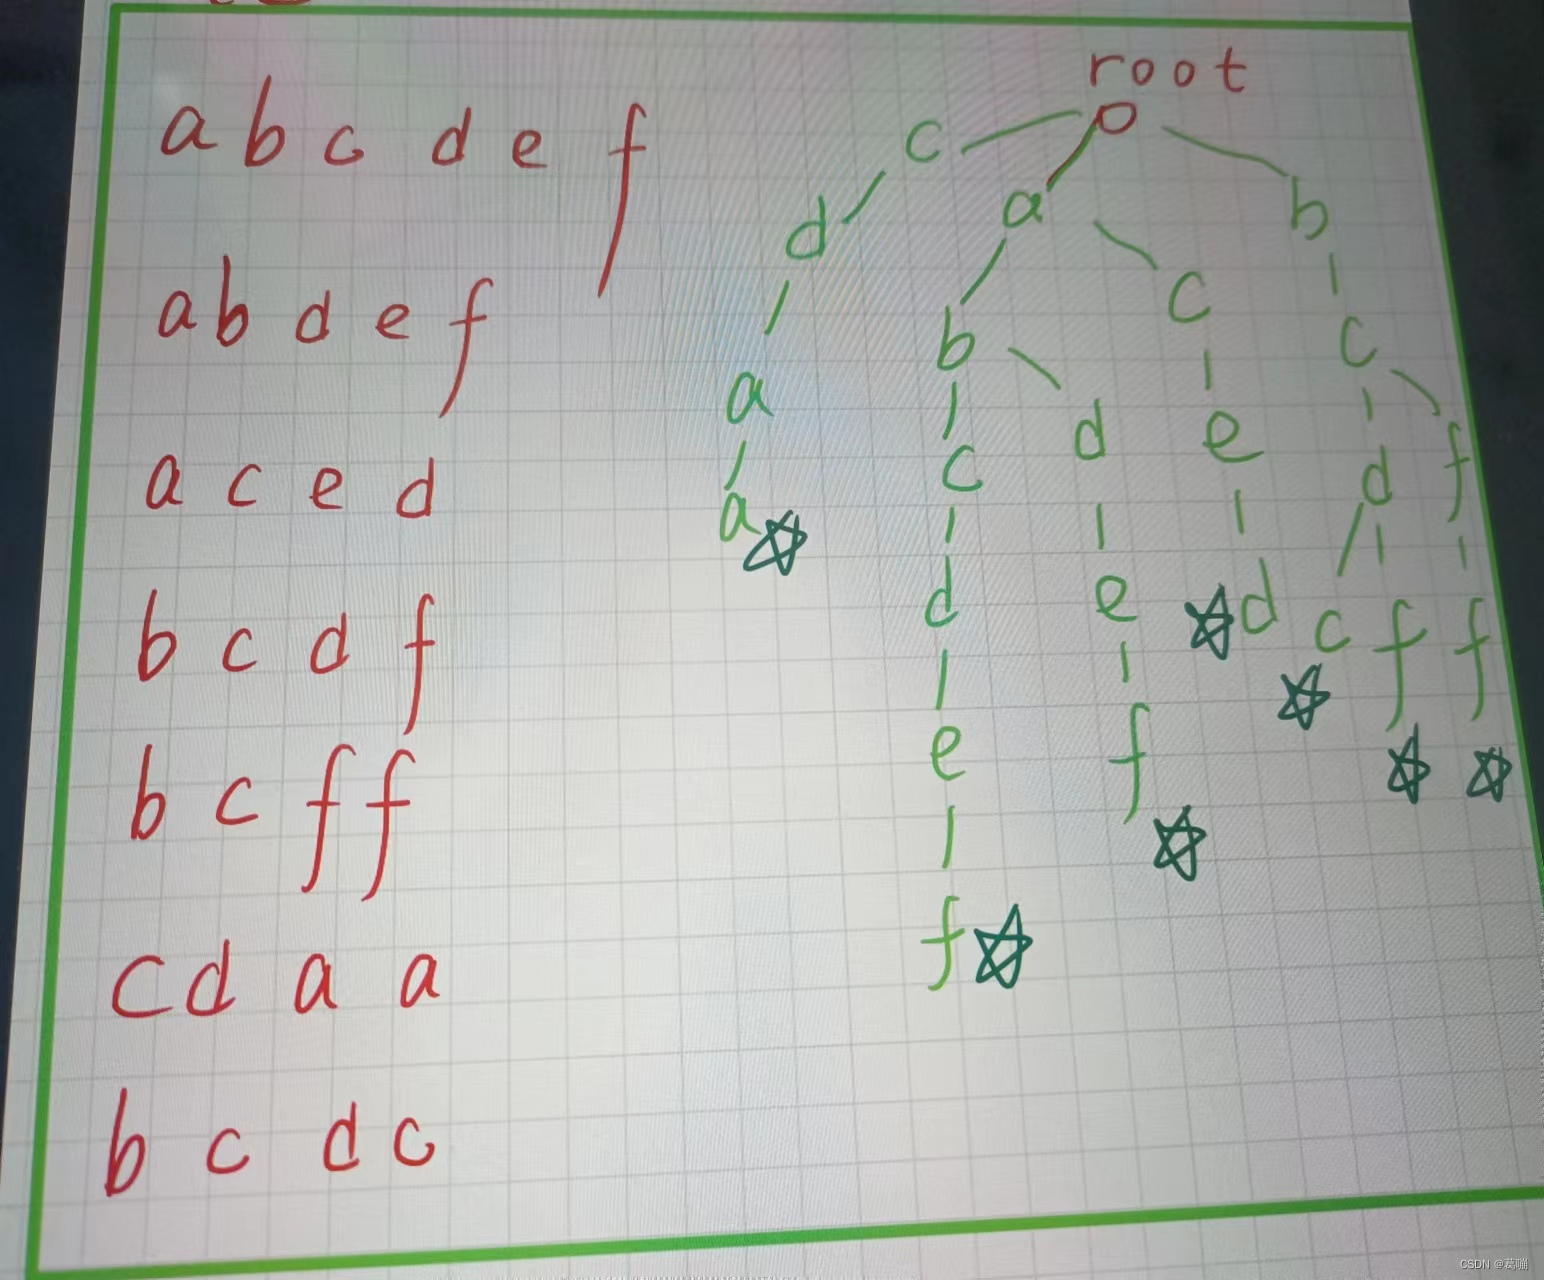 a b c d e f
a b d e f
a c e d
b c d f
b c f f
c d a a
b c d c
root
c a b
d b c c
a c d e d f
a d e d c f f
e f
f
CSDN